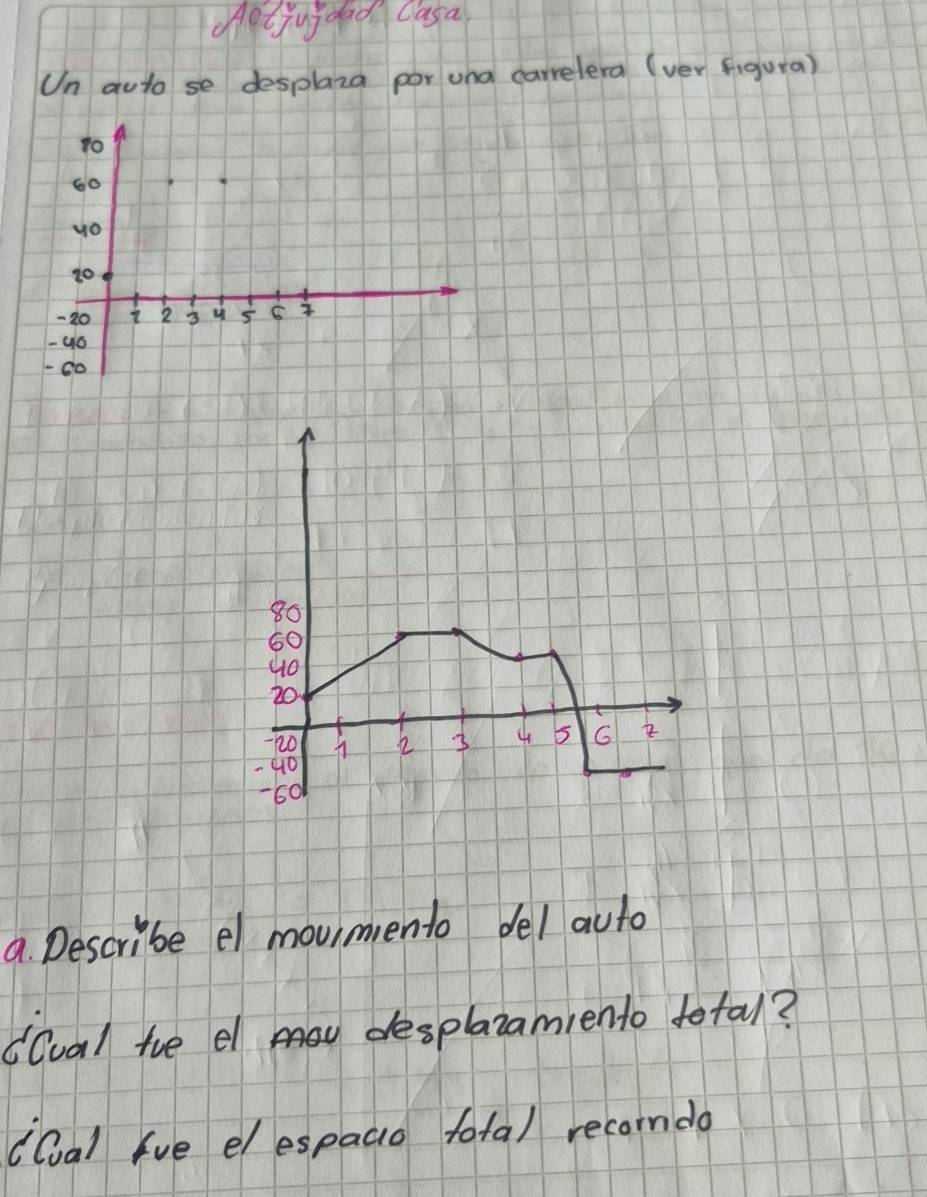 Actividad Casa.
Un auto se desplaza por una carretera (ver figura)
80
60
40
20
-20 1 2 3 4 5 6 7
-40
-60
80
60
40
20
-20 1 2 3 4 5 6 7
-40
-60
a. Describe el movimiento del auto
¿Cual fue el mov desplazamiento total?
¿Cual fue el espacio total recorrido